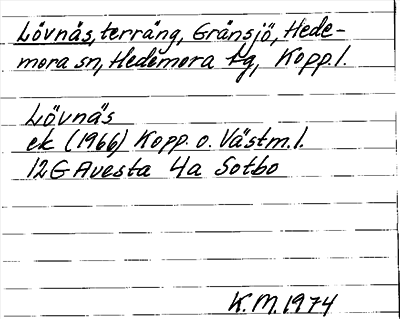 Lövnäs, terräng, Gränsjö, Hede-
mora sn, Hedemora tg, Kopp.l.
Lövnäs
ek (1966) Kopp. o. Västm.l.
12G Avesta 4a Sotbo
K.M. 1974